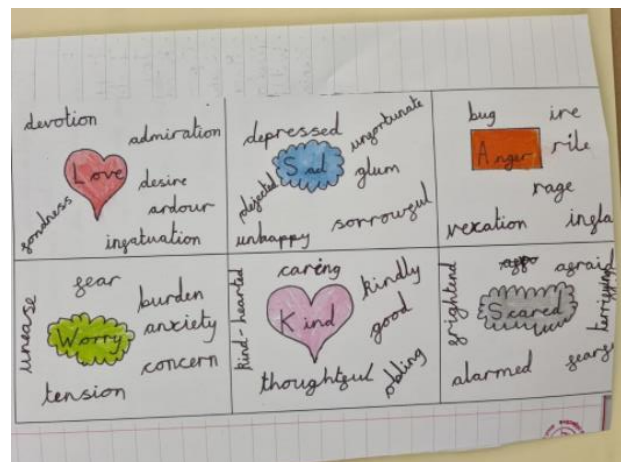 devotion
admiration
Love
desire
fondness
ardour
infatuation
depressed
unfortunate
Sad
glum
dejected
sorrowful
unhappy
bug
ire
Anger
rile
rage
vexation
infla
fear
unease
burden
Worry
anxiety
concern
tension
caring
kindly
kind-hearted
Kind
good
thoughtful
obliing
afrai
frightend
Scared
alarmed